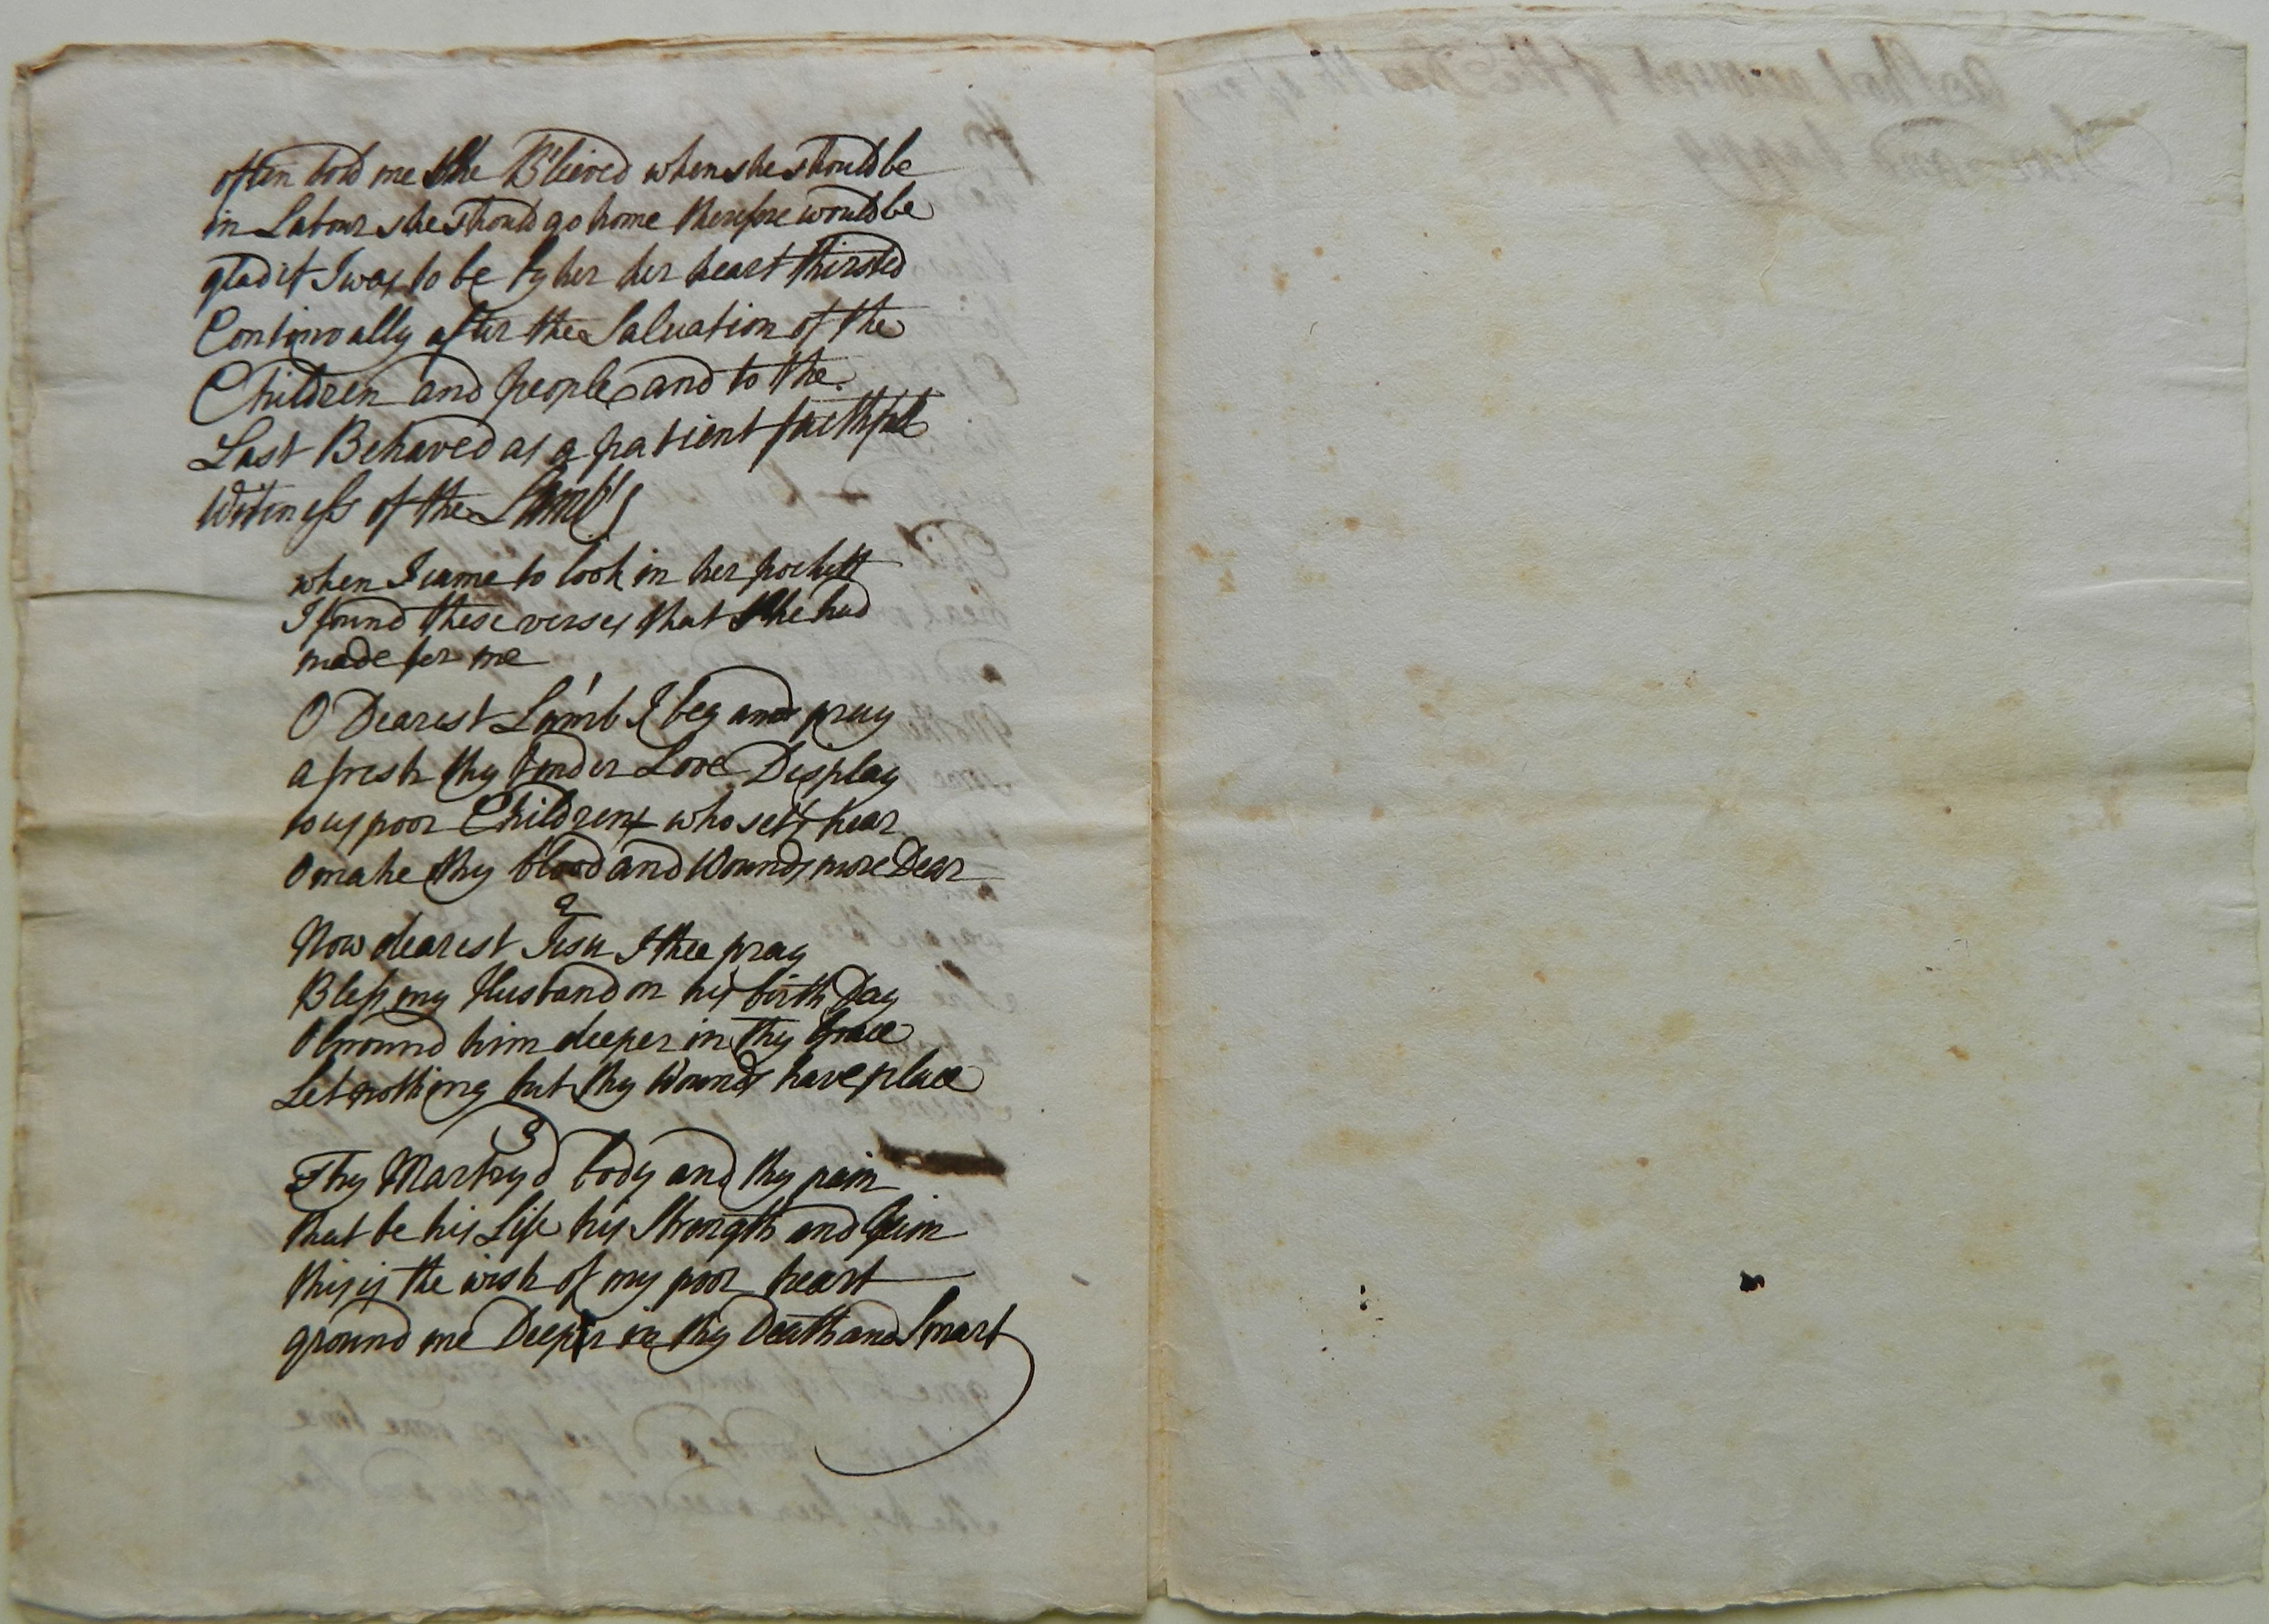 often told me she B'lieved when she should be
in Labour she should go home therefore would be
glad if I was to be by her her heart thirsted
Continually after the Salvation of the
Children and people and to the
Last Behaved as a patient faithfull
Witness of the Lamb's
when I came to look in her pockett
I found these verses that she had
made for me
O Dearest Lamb I beg and pray
afresh thy tender Love Display
to us poor Children who sett hear
O make thy blood and Wounds more Dear
2
Now dearest Jesu I thee pray
Bless my Husband on his birth Day
O ground him deeper in thy Grace
Let nothing but thy Wounds have place
3
Thy Martryd body and thy pain
that be his Life his Strength and Gain
this is the wish of my poor heart
ground me Deeper in thy Death and Smart